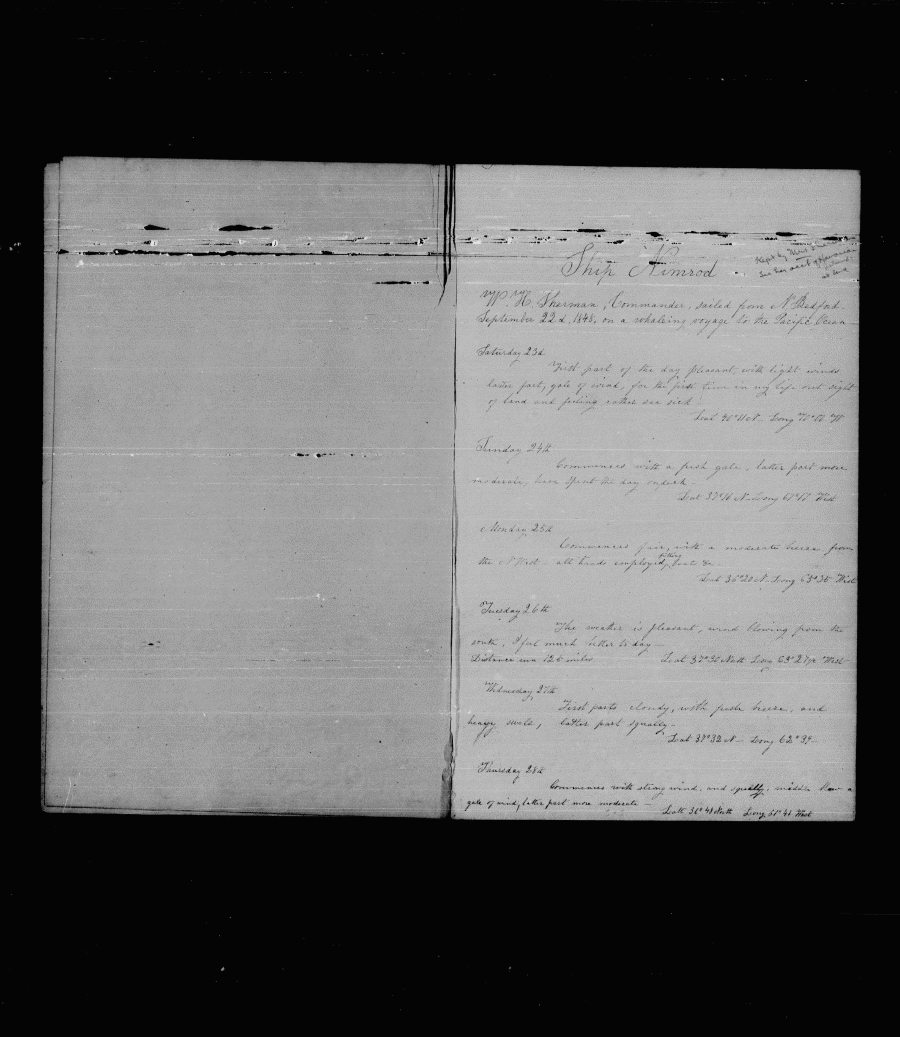 Ship Nimrod
Kept by Mrs
See her acct of Hawaiian
Islands
at end
W. H. Sherman, Commander, sailed from N. Bedford.
September 22d, 1848, on a whaleing voyage to the Pacific Ocean
Saturday 23d
First part of the day pleasant with light winds
latter part, gale of wind, for the first time in my life out sight
of land and feeling rather sea sick
Lat 40°11 N. Long 70°10 W
Sunday 24th
Commences with a fresh gale, latter part more
moderate, have spent the day
N. Long West
Monday 25th
Commences fair, with a moderate breeze from
the N West - all hands employed fitting boats &c
Lat 36°20 N. Long 65°30 West
Tuesday 26th
The weather is pleasant, wind blowing from the
south. I feel much better to day
Distance run 126 miles Lat 37°30 North Long 63° West
Wednesday 27th
First parts cloudy, with fresh breeze, and
heavy swell, latter part squally -
Lat 37°32 N - Long 62°39 -
Thursday 28th
Commences with strong wind, and squally, middle blew a
gale of wind, latter part more moderate -
Latt 36°48 North Long West